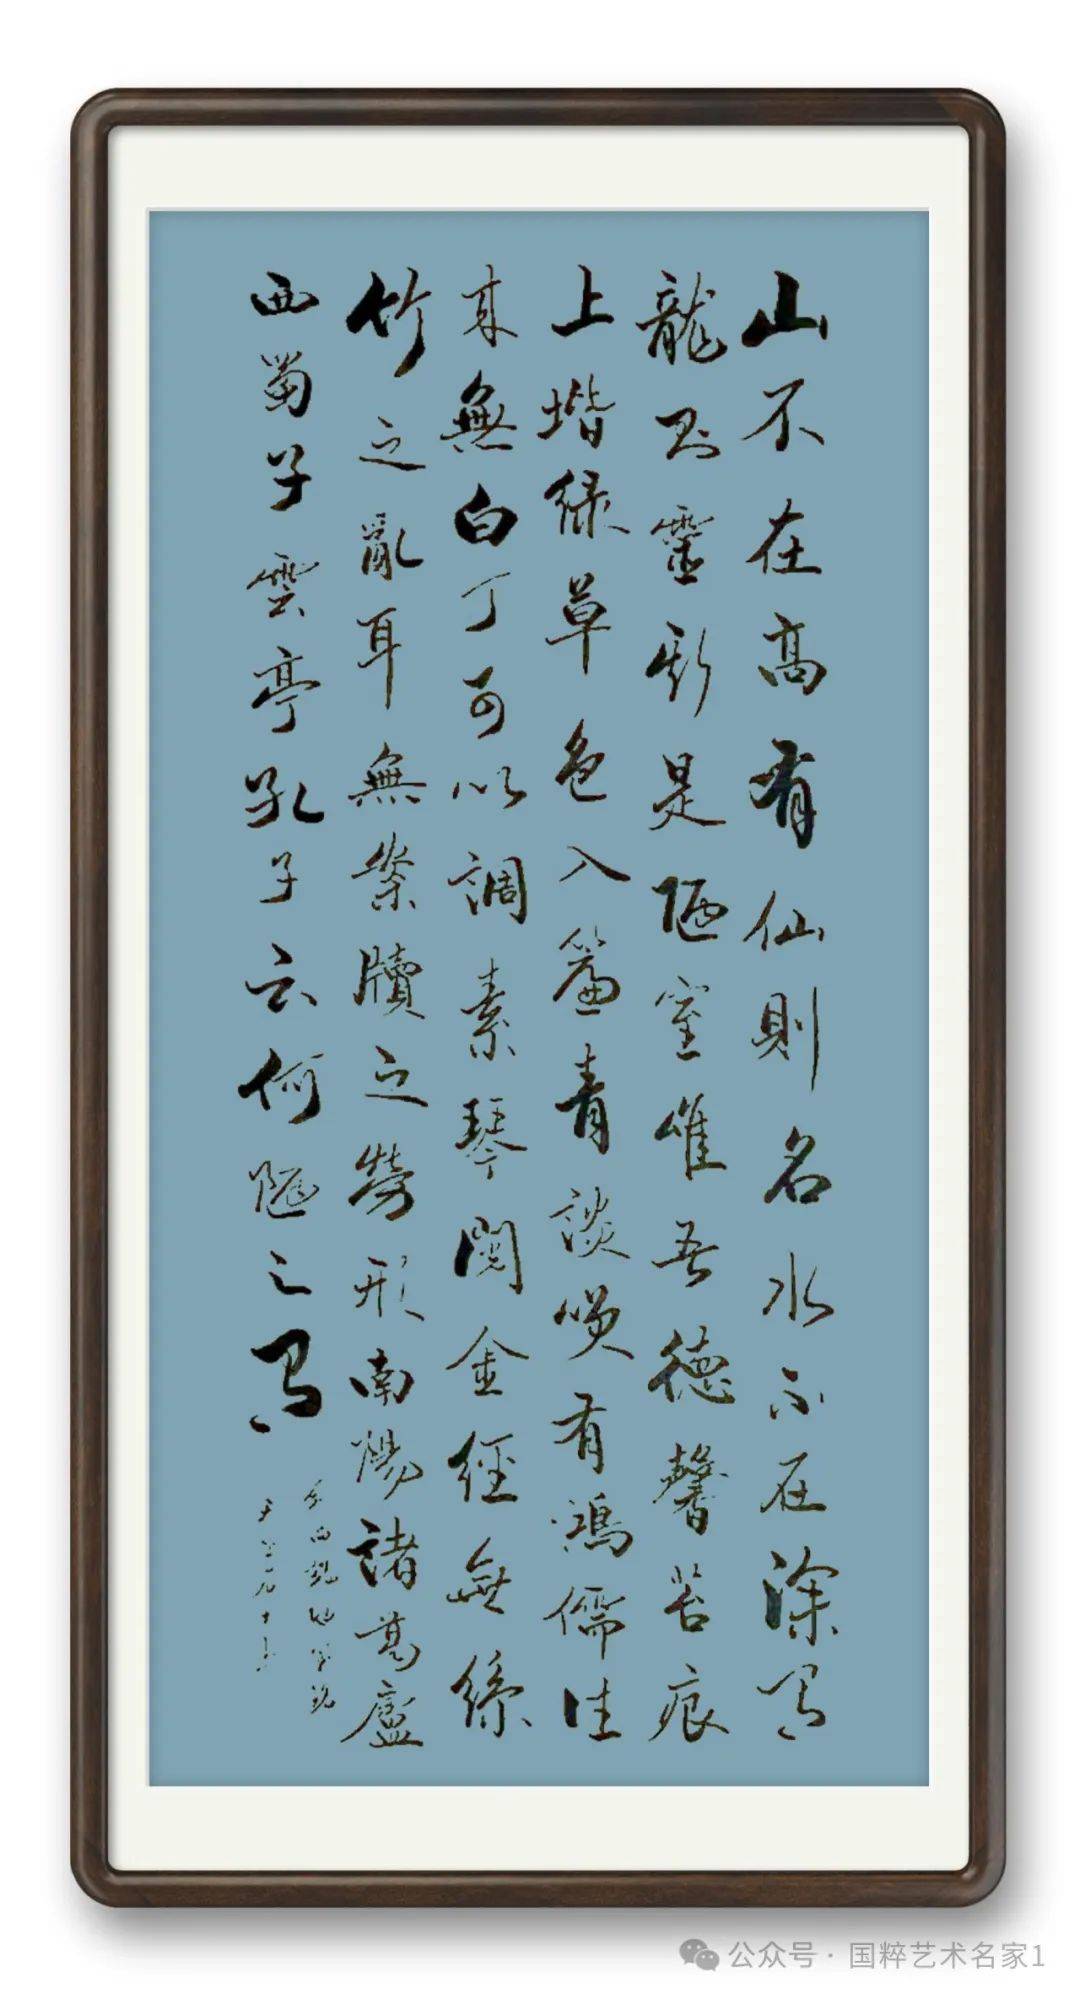 山不在高有仙則名水不在深有
龍則靈斯是陋室唯吾德馨苔痕
上堦緑草色入簾青談笑有鴻儒往
来無白丁可以調素琴閲金經無絲
竹之亂耳無案牘之勞形南陽諸葛廬
西蜀子雲亭孔子云何陋之有
公众号·国粹艺术名家1